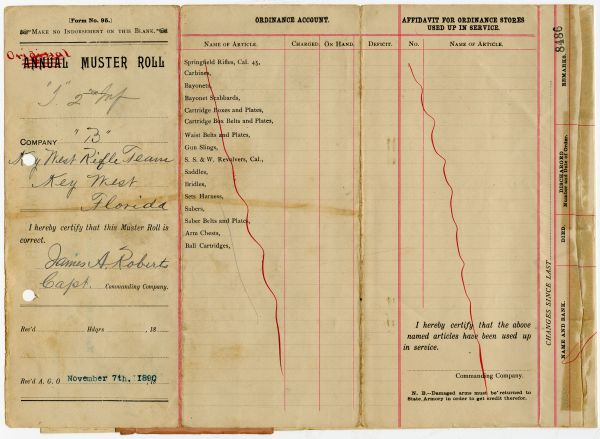 (Form No. 95.)
MAKE NO INDORSEMENT ON THIS BLANK.
Original
ANNUAL MUSTER ROLL
"I" 2nd Inf
COMPANY "B"
Key West Rifle Team
Key West
Florida
I hereby certify that this Muster Roll is
correct.
James A. Roberts
Capt. Commanding Company.
Rec'd Hdqrs , 18
Rec'd A. G. O November 7th, 1890
ORDINANCE ACCOUNT.
NAME OF ARTICLE. CHARGED. ON HAND. DEFICIT.
Springfield Rifles, Cal. 45,
Carbines,
Bayonets
Bayonet Scabbards,
Cartridge Boxes and Plates,
Cartridge Box Belts and Plates,
Waist Belts and Plates,
Gun Slings,
S. S. & W. Revolvers, Cal.,
Saddles,
Bridles,
Sets Harness,
Sabers,
Saber Belts and Plates,
Arm Chests,
Ball Cartridges,
AFFIDAVIT FOR ORDNANCE STORES
USED UP IN SERVICE.
NO. NAME OF ARTICLE.
I hereby certify that the above
named articles have been used up
in service.
Commanding Company.
N. B.—Damaged arms must be returned to
State Armory in order to get credit therefor.
CHANGES SINCE LAST
NAME AND RANK.
DIED.
DISCHARGED.
Number and Date of Order.
REMARKS.
8486